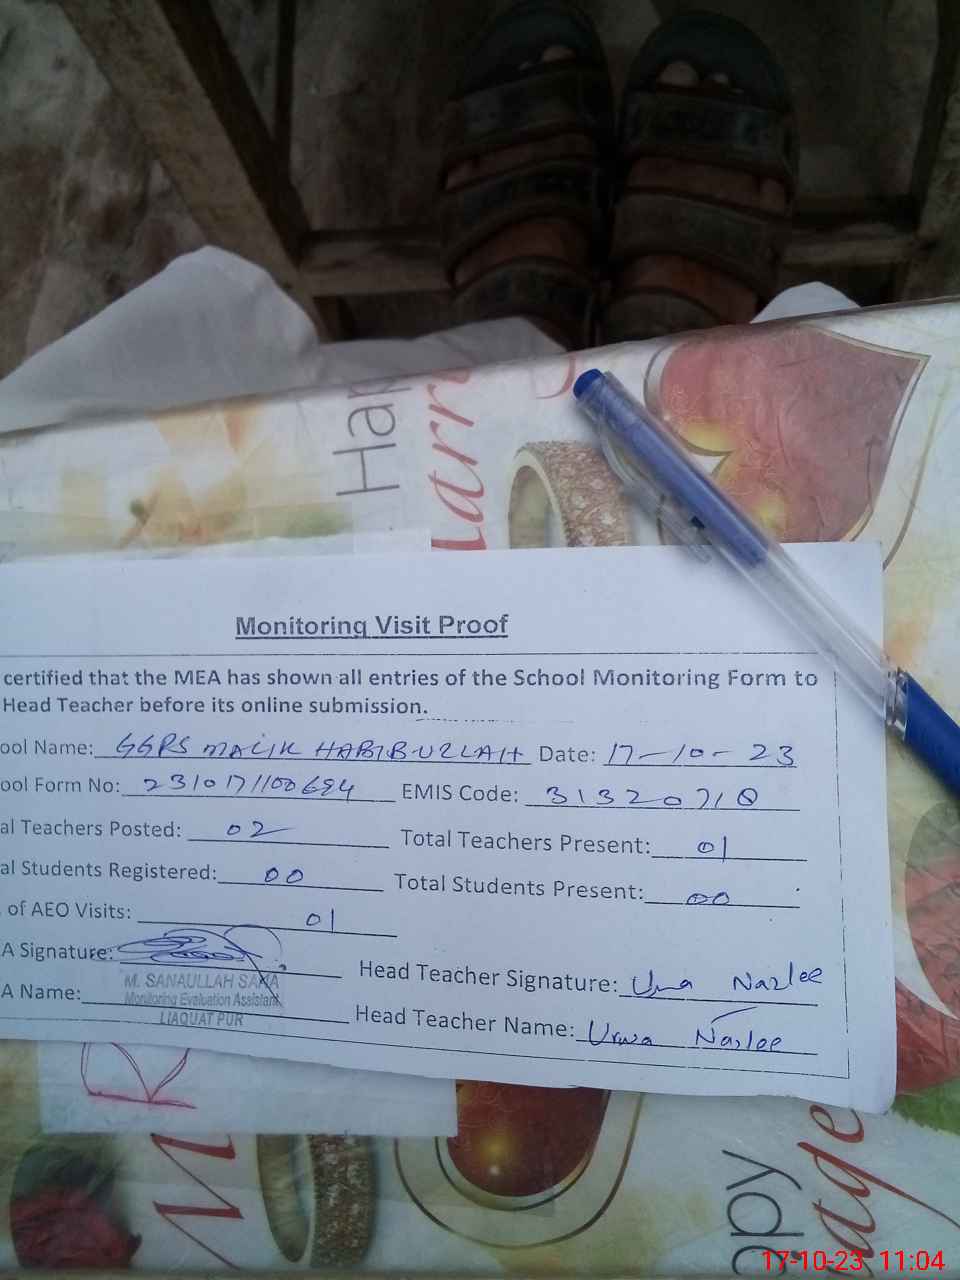 Har
arri
Monitoring Visit Proof
certified that the MEA has shown all entries of the School Monitoring Form to
Head Teacher before its online submission.
ool Name: GGPS MALIK HABIBULLAH Date: 17-10-23
ool Form No: 231017/100694 EMIS Code: 31320710
al Teachers Posted: 02 Total Teachers Present: 01
al Students Registered: 00 Total Students Present: 00
of AEO Visits: 01
A Signature: Head Teacher Signature: Urwa Nazlee
M. SANAULLAH SAQIA
A Name: Monitoring Evaluation Assistant
LIAQUAT PUR
Head Teacher Name: Urwa Nazlee
R
M
ppy
age
17-10-23 11:04